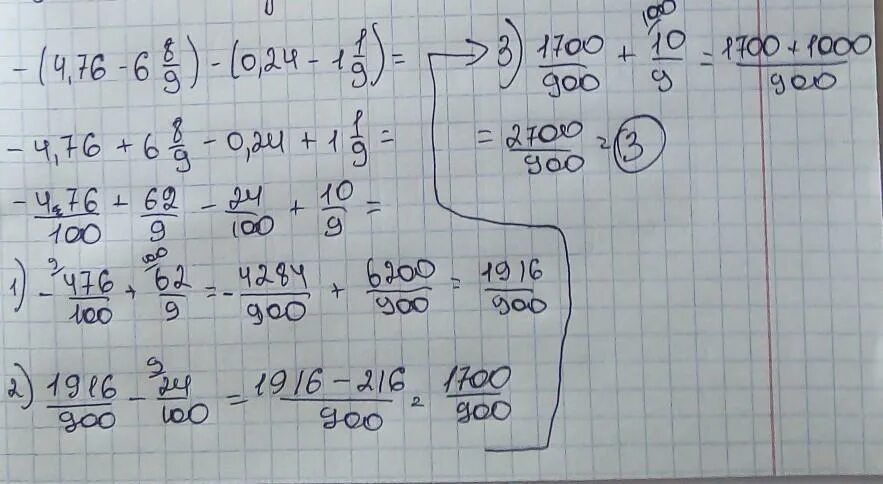 -(4,76 - 6 8/9) - (0,24 - 1 1/9) =
-4,76 + 6 8/9 - 0,24 + 1 1/9 =
-476/100 + 62/9 - 24/100 + 10/9 =
1) -476/100 + 62/9 = -4284/900 + 6200/900 = 1916/900
2) 1916/900 - 24/100 = 1916 - 216/900 = 1700/900
3) 1700/900 + 10/9 = 1700 + 1000/900
= 2700/900 = 3